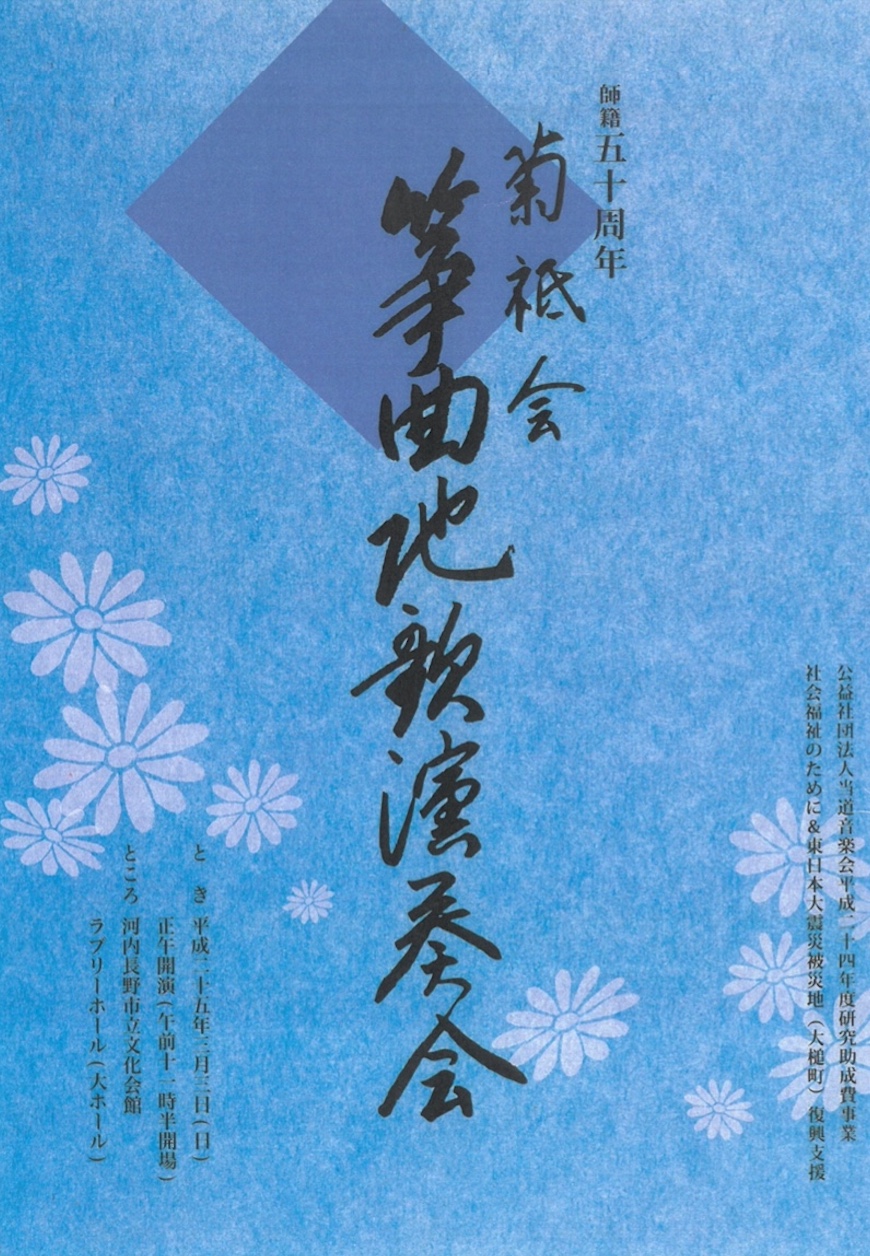 公益社団法人当道音楽会平成二十四年度研究助成費事業
社会福祉のために&東日本大震災被災地（大槌町）復興支援
師籍五十周年
菊祗会
箏曲地歌演奏会
とき 平成二十五年三月三日(日)
正午開演(午前十一時半開場)
ところ 河内長野市立文化会館
ラブリーホール(大ホール)